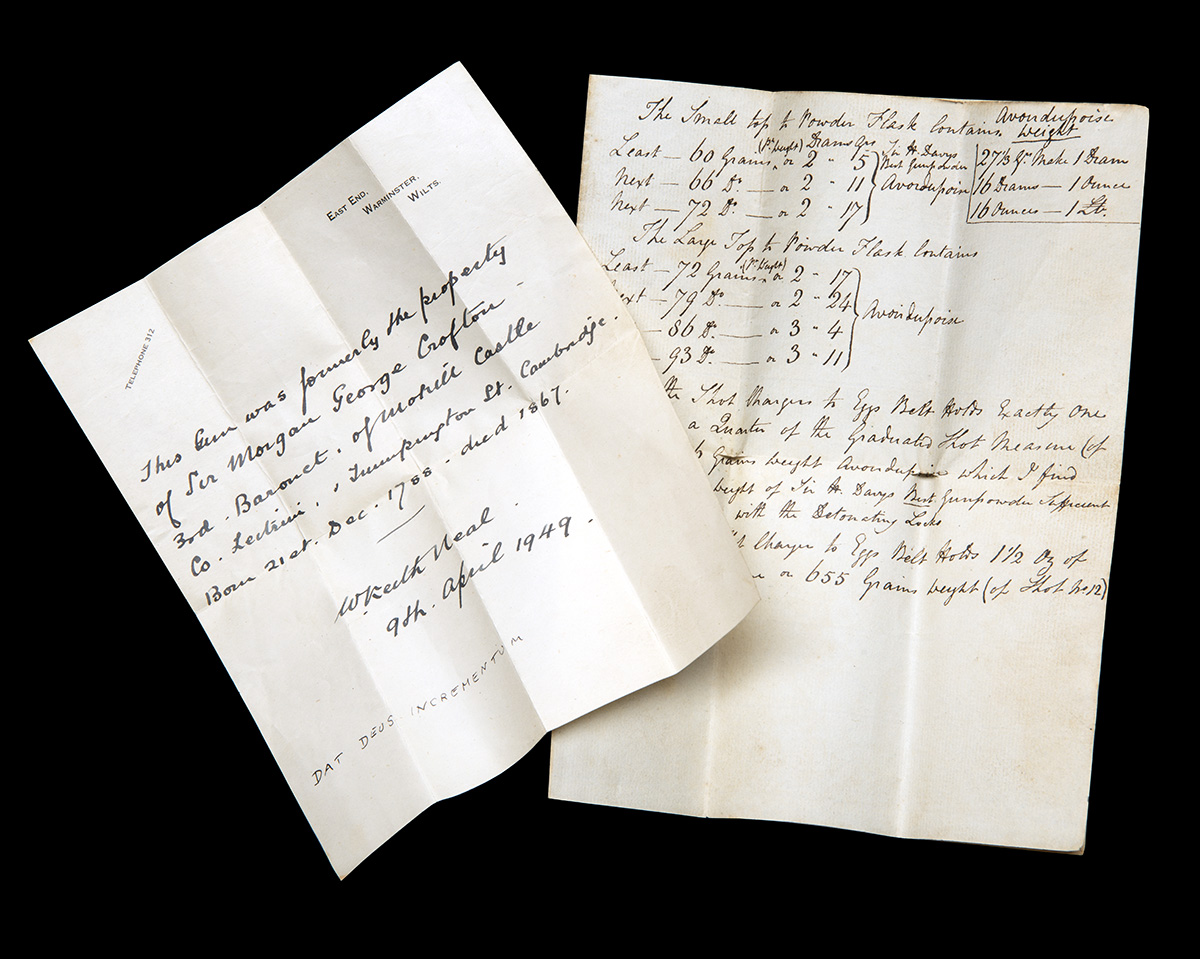 EAST END,
WARMINSTER.
WILTS.
TELEPHONE 312
This Gun was formerly the property
of Sir Morgan George Crofton
3rd. Baronet. of Mohill Castle
Co. Leitrim, , Trumpington St. Cambridge.
Born 21st. Dec. 1788. died 1867.
W Keith Neal.
9th. April 1949.
DAT DEUS INCREMENTUM
The Small top to Powder Flask Contains Avoirdupoise
weight
Least — 60 Grains or 2 " 5
Next — 66 Do. — or 2 " 11
Next — 72 Do. — or 2 " 17
Drams Grs
Sir H. Davys
Best Gunpowder
Avoirdupoise
27 1/3 Grs Make 1 Dram
16 Drams — 1 Ounce
16 Ounces — 1 Lb.
The Large Top to Powder Flask Contains
Least — 72 Grains or 2 " 17
ext — 79 Do — or 2 " 24
— 86 Do. — or 3 " 4
— 93 Do. — or 3 " 11
Avoirdupoise
the Shot Chargers to Eggs Belt Holds Exactly One
a Quarter of the Graduated Shot Measure (of
Grains weight Avoirdupoise which I find
weight of Sir H. Davys Best Gunpowder Sufficient
with the Detonating Locks
Charger to Eggs Belt Holds 1 1/2 Oz of
or 655 Grains weight (of Shot No 12)